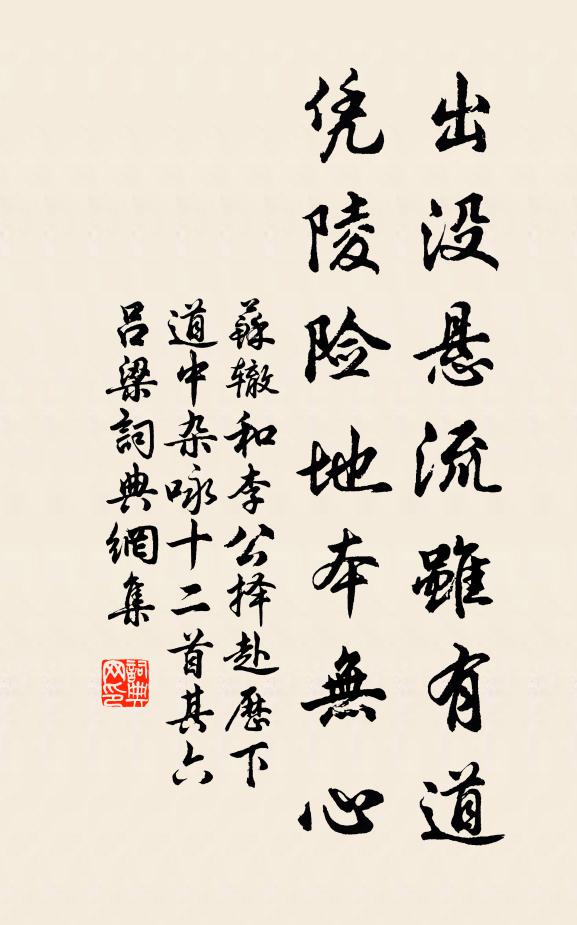 出没悬流雖有道
凭陵险地本無心
蘇辙和李公择赴歷下
道中杂咏十二首其六
吕梁詞典網集
詞典网印